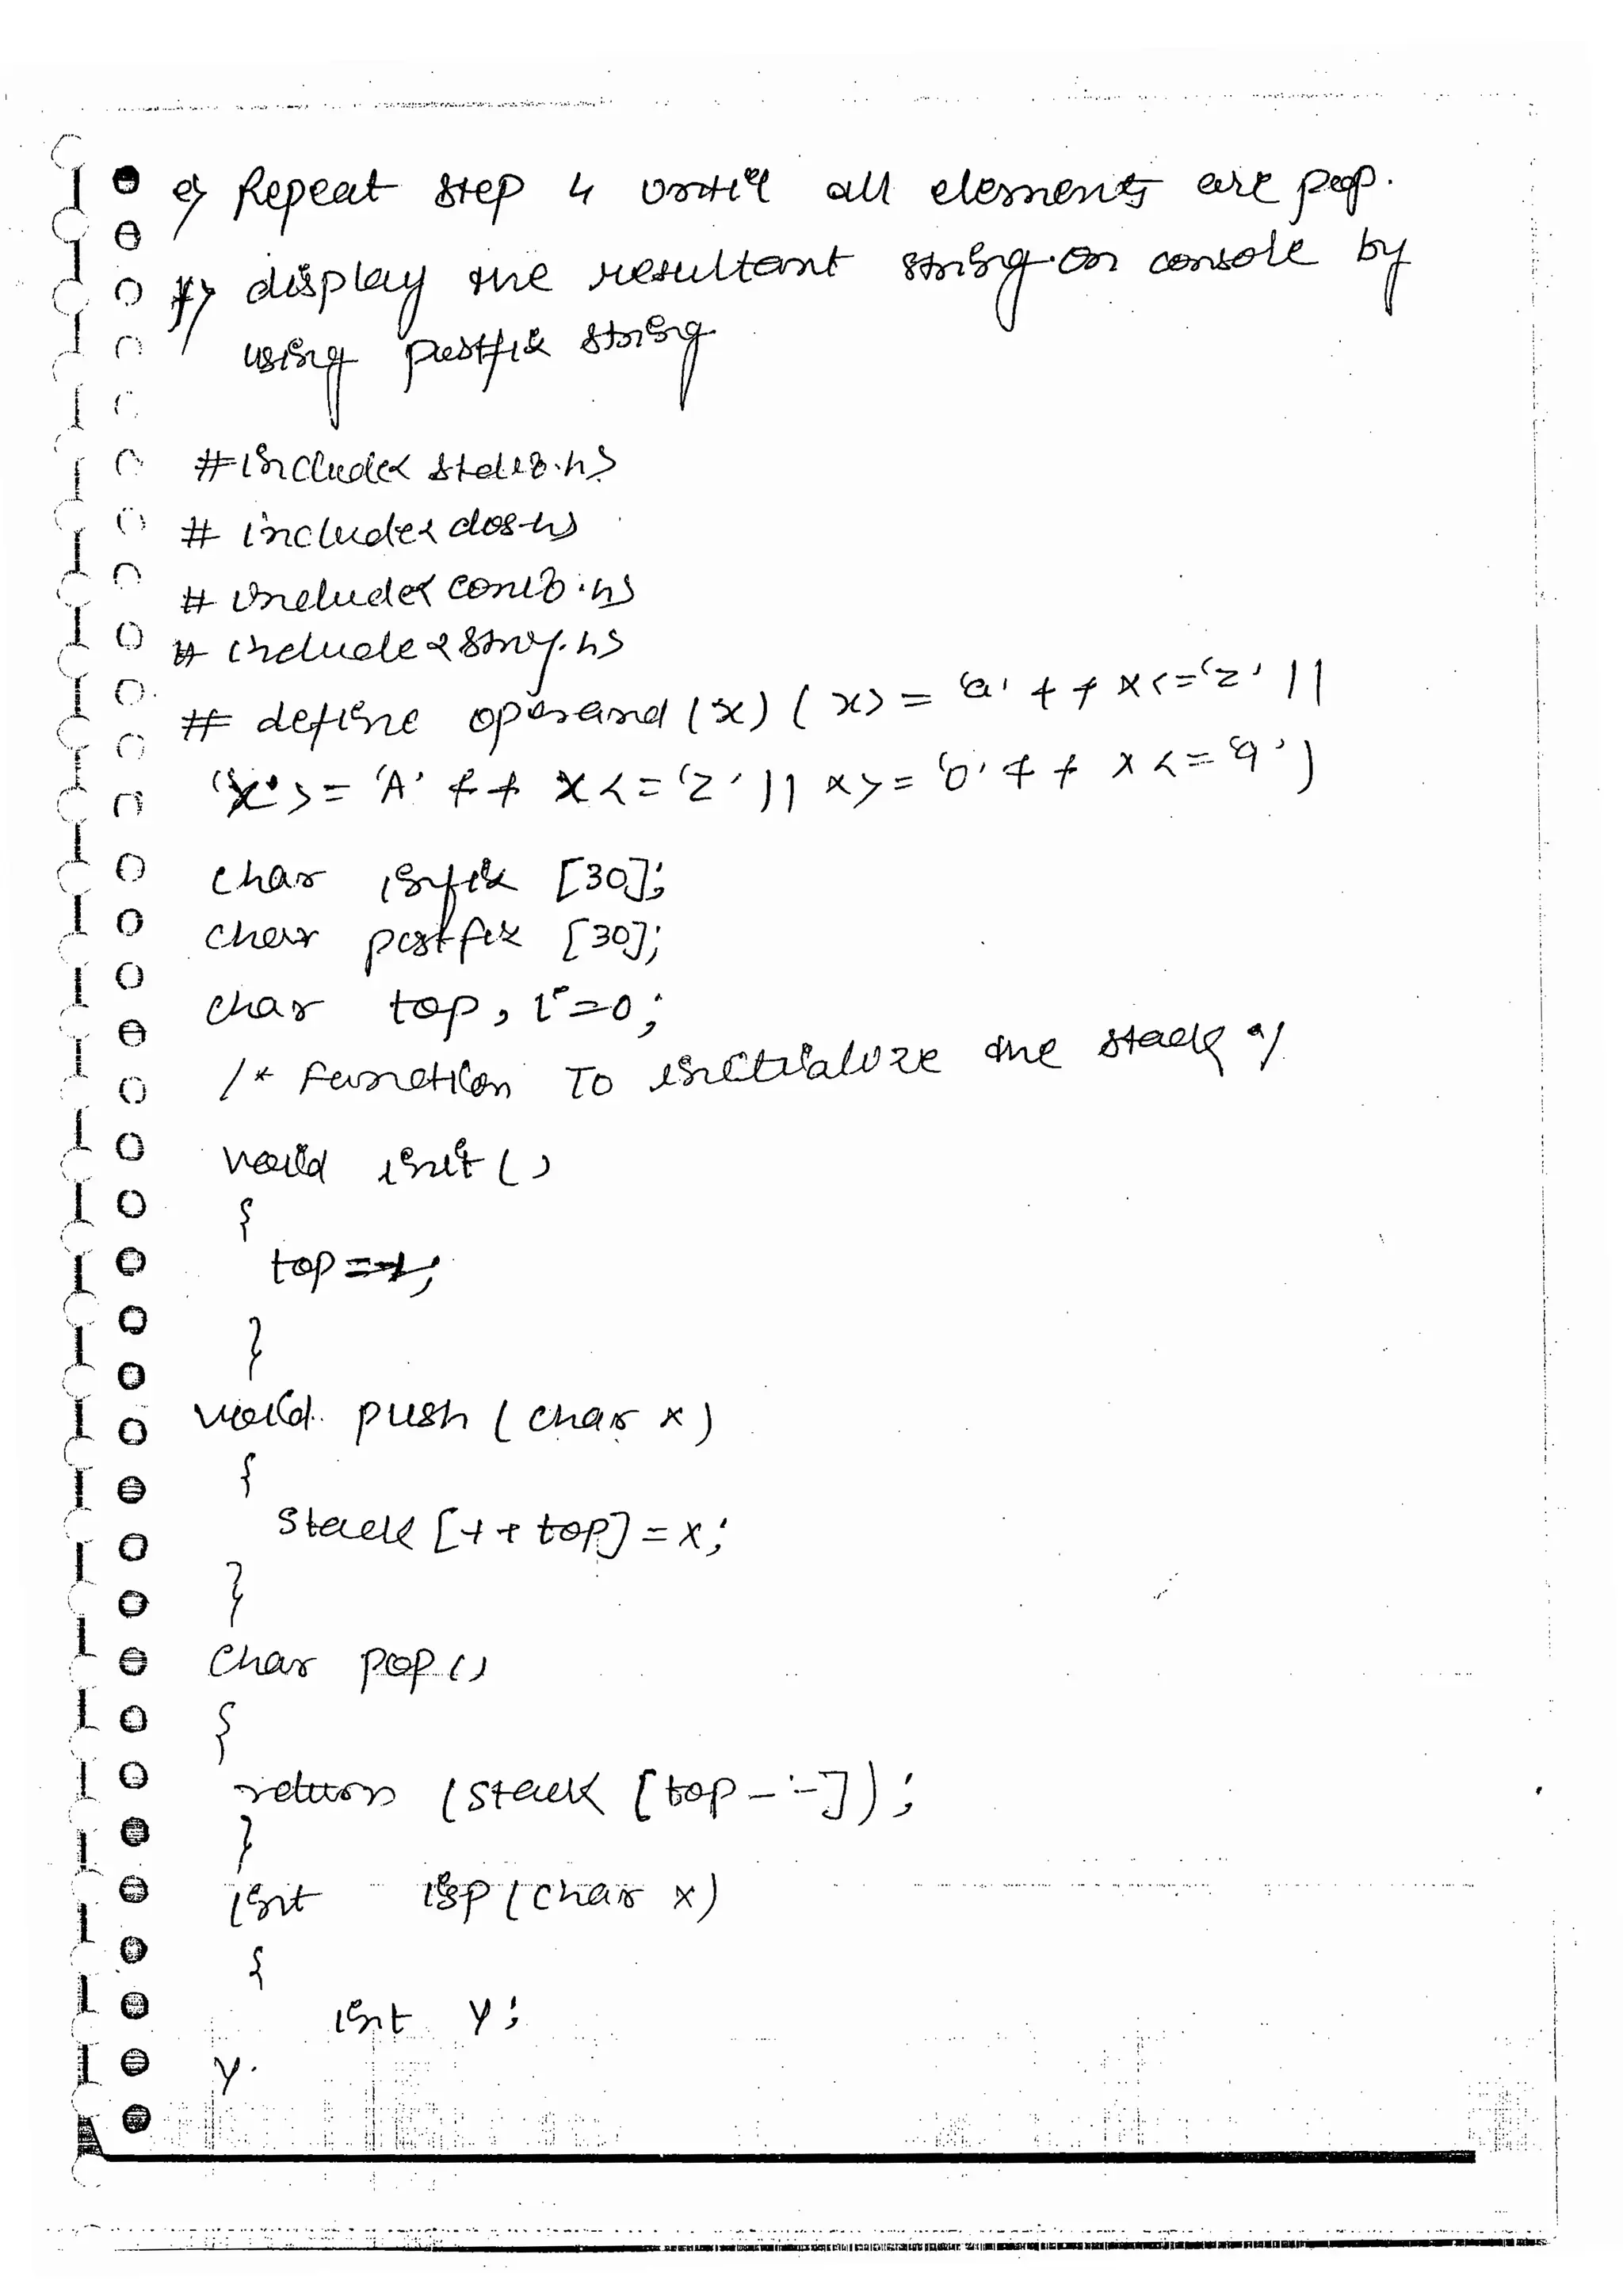 e) Repeat step 4 until all elements are pop.
f) display the resultant string on console by
using postfix string
#include< stdio.h>
# include< dos.h>
# include< conio.h>
# include< string.h>
# define operand (x) ( x>= 'a' && x<='z' ||
x>= 'A' && x<='Z' || x>= '0' && x<= '9' )
char infix [30];
char postfix [30];
char top, i=0;
/* Function To initialize the stack */
void init ()
{
top=-1;
}
void push ( char x )
{
stack [++top] = x;
}
char pop ()
{
return (stack [top--]);
}
int isp ( char x )
{
int y;
y.